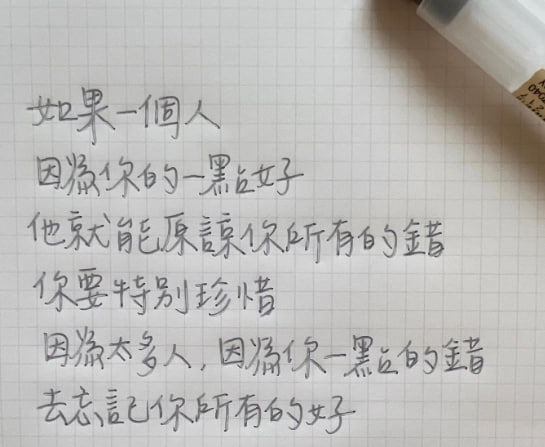 如果一個人
因為你的一點好
他就能原諒你所有的錯
你要特別珍惜
因為太多人，因為你一點的錯
去忘記你所有的好